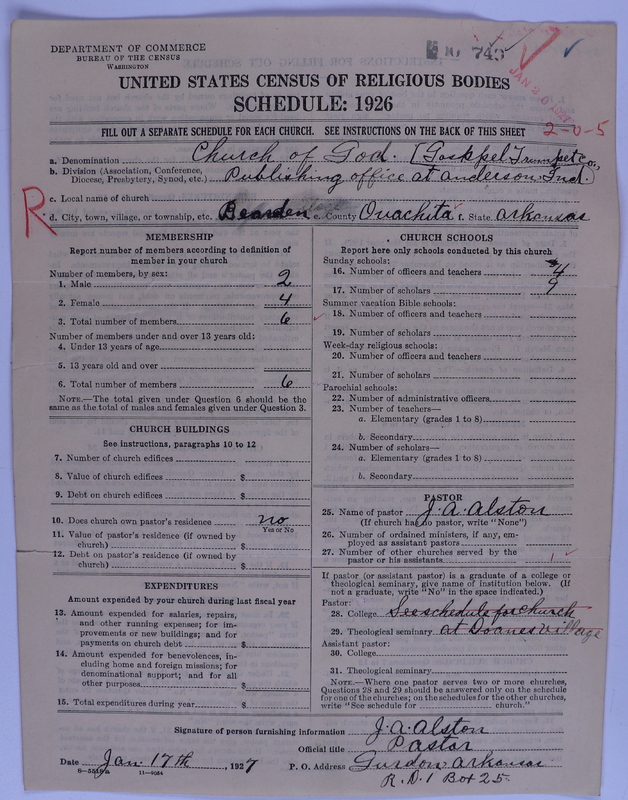 DEPARTMENT OF COMMERCE
BUREAU OF THE CENSUS
WASHINGTON
No 743
JAN 20 1927
UNITED STATES CENSUS OF RELIGIOUS BODIES
SCHEDULE: 1926
FILL OUT A SEPARATE SCHEDULE FOR EACH CHURCH. SEE INSTRUCTIONS ON THE BACK OF THIS SHEET
2-0-5
a. Denomination Church of God. [Goskpel Trumpet Co.,
b. Division (Association, Conference, Diocese, Presbytery, Synod, etc.) Publishing office at anderson. Ind.)
c. Local name of church
R
d. City, town, village, or township, etc. Bearden e. County Ouachita f. State arkansas
MEMBERSHIP
Report number of members according to definition of member in your church
Number of members, by sex:
1. Male 2
2. Female 4
3. Total number of members 6
Number of members under and over 13 years old:
4. Under 13 years of age
5. 13 years old and over
6. Total number of members 6
NOTE.—The total given under Question 6 should be the same as the total of males and females given under Question 3.
CHURCH BUILDINGS
See instructions, paragraphs 10 to 12
7. Number of church edifices
8. Value of church edifices $
9. Debt on church edifices $
10. Does church own pastor's residence no
Yes or No
11. Value of pastor's residence (if owned by church) $
12. Debt on pastor's residence (if owned by church) $
EXPENDITURES
Amount expended by your church during last fiscal year
13. Amount expended for salaries, repairs, and other running expenses; for improvements or new buildings; and for payments on church debt $
14. Amount expended for benevolences, including home and foreign missions; for denominational support; and for all other purposes $
15. Total expenditures during year $
CHURCH SCHOOLS
Report here only schools conducted by this church
Sunday schools:
16. Number of officers and teachers 4
17. Number of scholars 9
Summer vacation Bible schools:
18. Number of officers and teachers
19. Number of scholars
Week-day religious schools:
20. Number of officers and teachers
21. Number of scholars
Parochial schools:
22. Number of administrative officers
23. Number of teachers—
a. Elementary (grades 1 to 8)
b. Secondary
24. Number of scholars—
a. Elementary (grades 1 to 8)
b. Secondary
PASTOR
25. Name of pastor J. A. Alston
(If church has no pastor, write "None")
26. Number of ordained ministers, if any, employed as assistant pastors
27. Number of other churches served by the pastor or his assistants 1
If pastor (or assistant pastor) is a graduate of a college or theological seminary, give name of institution below. (If not a graduate, write "No" in the space indicated.)
Pastor:
28. College See schedule for church
29. Theological seminary at Doanes Village
Assistant pastor:
30. College
31. Theological seminary
NOTE.—Where one pastor serves two or more churches, Questions 28 and 29 should be answered only on the schedule for one of the churches; on the schedules for the other churches, write "See schedule for church."
Signature of person furnishing information J. A. Alston
Official title Pastor
Date Jan. 17th, 1927 P. O. Address Gurdon arkansas
11—9054 R. D. 1 Box 25.